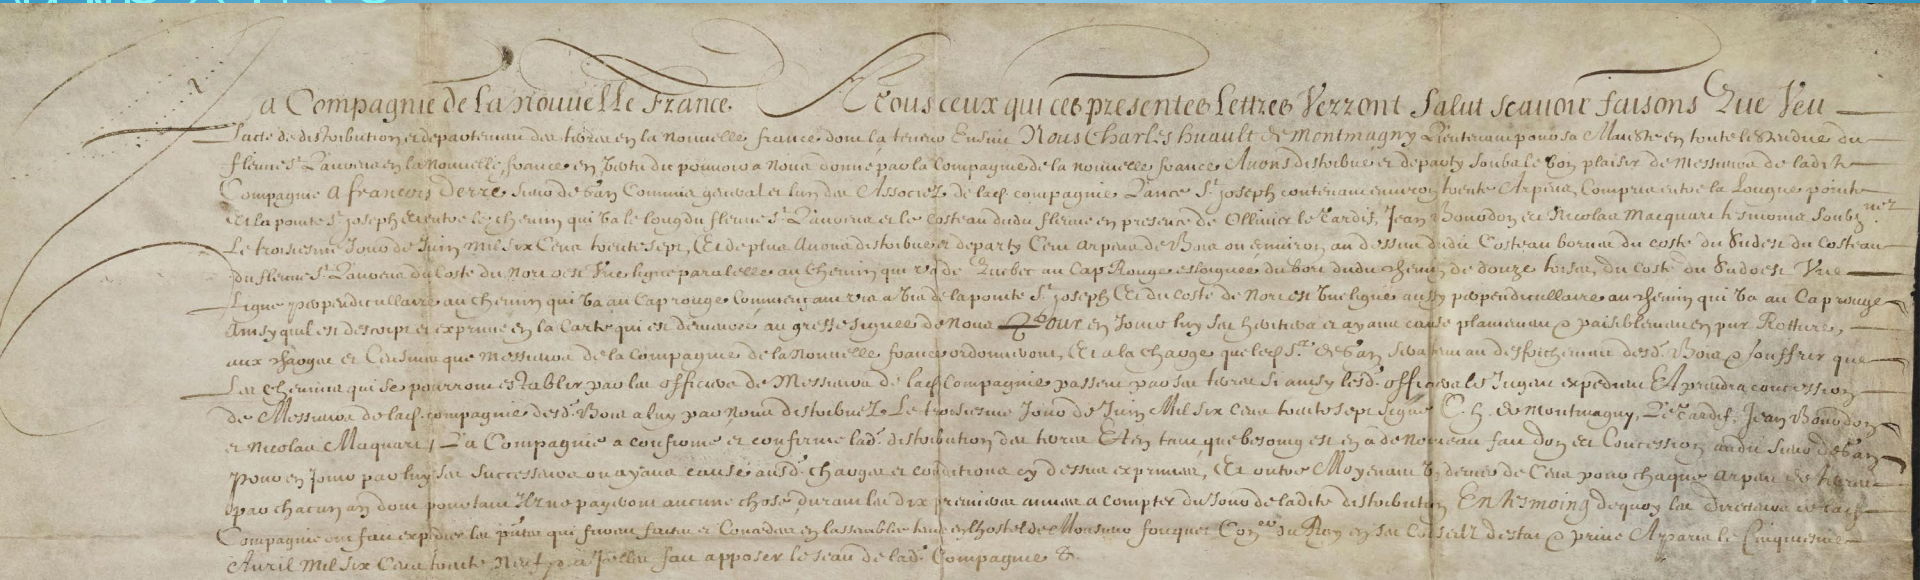 La Compagnie de la nouuelle france. A tous ceux qui ces presentes lettres verront Salut scauoir faisons Que Veu
Lacte de distribution et departement des terres en la nouuelle france dont la teneur Ensuit Nous Charles huault de montmagny Lieutenant pour sa Maiesté en toute lestendue du
fleuue St Laurens en la nouuelle france en vertu du pouuoir a Nous donné par la Compagnie de la nouuelle france Auons distribué et departy soubs le bon plaisir de messieurs de ladite
Compagnie A francois derré sieur de Gan Commis general et lun des Associez de lad compagnie Lance St Joseph contenant enuiron trente Arpens, Compris entre la Longue pointe
Et la pointe St Joseph Et entre le chemin qui va le long du fleuue St Laurens et le costeau dudit fleuue en presence de Olliuier le tardif, Jean Bourdon et Nicolas Macquart tesmoins soubz nez
Le troisiesme Jour de Juin mil six Cens trente sept, Et de plus Auons distribué et departy Cent arpens de Bois ou enuiron au dessus dudit Costeau bornez du costé du Sudest du Costeau
du fleuue St Laurens du Costé du Norouest Vne ligne paralelle au chemin qui va de Quebec au Cap Rouge esloignée du bord dudit chemin de douze toises, du costé du Sudoest Vne
Ligne perpendicullaire au chemin qui va au Cap rouge Commençant vis a vis de la pointe St Joseph Et du costé de Nordest vne ligne aussy perpendicullaire au chemin qui va au Cap rouge
Ainsy quil est descript et exprimé en la Carte qui est demeuré au greffe signée de Nous Pour en Jouir luy ses heritiers et ayans cause plainement & paisiblement en pur Rotture,
aux charges et Censiues que messieurs de la Compagnie de la Nouuelle france ordonneront, Et a la charge que led Sr de Gan sera tenu au desfrichement desd. Bois & souffrir que
Les chemins qui se pourront establir par les officiers de Messieurs de lad Compagnie passent par ses terres si ainsy lesd. officiers le Jugent expedient Et prendra concession
de Messieurs de lad. compagnie desd. Bois a luy par Nous distribuez Le troisiesme Jour de Juin Mil six Cens trente sept signé C. h. de montmagny, Le tardif, Jean Bourdon
et Nicolas Maquart, La Compagnie a confirmé et confirme lad. distribution des terres Et en tant que besoing est en a de Nouueau fait don et Concession audit sieur de Gan
Pour en Jouir par luy ses successeurs ou ayans cause ausd. charges et conditions cy dessus exprimées, Et outre Moyenant denier de Cens pour chaque arpent de terre
par chacun an dont pourtant Ilz ne payeront aucune chose durant les dix premieres années a compter du Jour de ladite distribution En tesmoing dequoy les directeurs de lad
Compagnie ont fait expedier les ptes qui furent faites et Concedées en lassemblée tenue en lhostel de Monsieur fouquet Conser du Roy en ses Conseilz destat & priué A paris le Cinquiesme
Auril Mil six Cens trente Neuf, & a Jcelles fait apposer le seau de lad. Compagnie &.